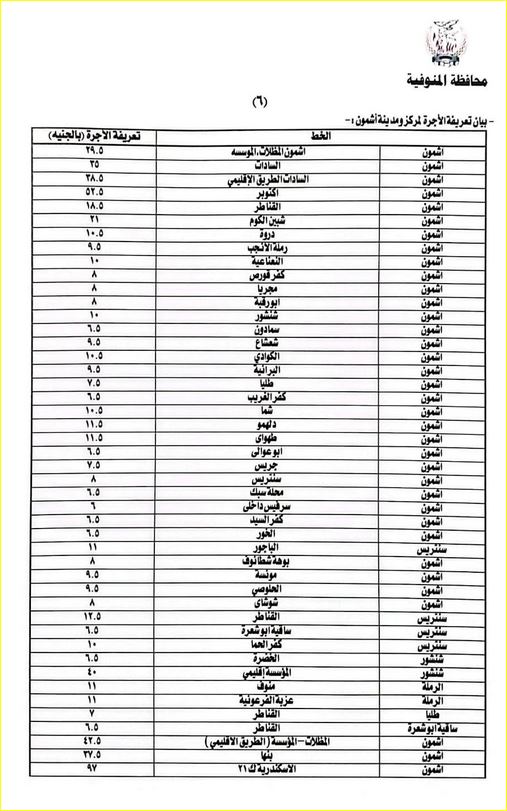 محافظة المنوفية
(٦)
- بيان تعريفة الأجرة لمركز ومدينة أشمون :-
الخط تعريفة الأجرة (بالجنيه)
اشمون اشمون المظلات، الموسسه ٢٩.٥
اشمون السادات ٣٥
اشمون السادات الطريق الإقليمي ٣٨.٥
اشمون اكتوبر ٥٢.٥
اشمون القناطر ١٨.٥
اشمون شبين الكوم ٢١
اشمون دروة ١٠.٥
اشمون رملة الأنجب ٩.٥
اشمون النعناعية ١٠
اشمون كفر قورص ٨
اشمون مجريا ٨
اشمون ابورقبة ٨
اشمون شنشور ١٠
اشمون سمادون ٦.٥
اشمون شعشاع ٩.٥
اشمون الكوادي ١٠.٥
اشمون البرانية ٩.٥
اشمون طليا ٧.٥
اشمون كفر الغريب ٦.٥
اشمون شما ١٠.٥
اشمون دلهمو ١١.٥
اشمون طهواى ١١.٥
اشمون ابو عوالى ٦.٥
اشمون جريس ٧.٥
اشمون سنتريس ٨
اشمون محلة سبك ٦.٥
اشمون سرفيس داخلى ٦
اشمون كفر السيد ٦.٥
اشمون الخور ٦.٥
سنتريس الباجور ١١
اشمون بوهة شطانوف ٨
اشمون مونسة ٩.٥
اشمون الحلوصي ٩.٥
اشمون شوشاى ٨
سنتريس القناطر ١٢.٥
سنتريس ساقية ابو شعرة ٦.٥
سنتريس كفر الحما ١٠
شنشور الخضرة ٦.٥
شنشور المؤسسة إقليمي ٤٠
الرملة منوف ١١
الرملة عزبة الفرعونية ١١
طليا القناطر ٧
ساقية ابو شعرة القناطر ٦.٥
اشمون المظلات - المؤسسة ( الطريق الاقليمي ) ٤٢.٥
اشمون بنها ٣٧.٥
اشمون الاسكندرية ك ٢١ ٩٧